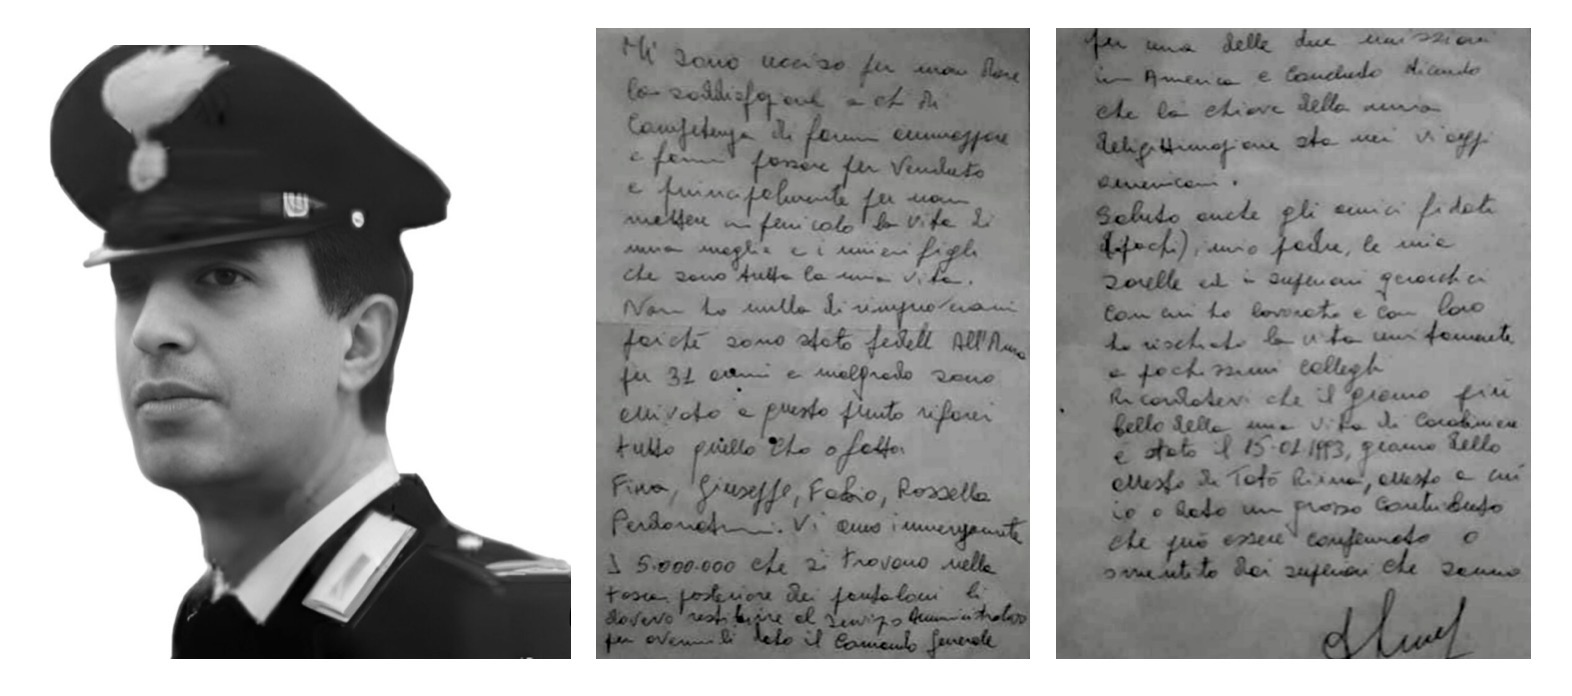 Mi sono ucciso per non dare
la soddisfazione a chi di
Competenza di farmi ammazzare
e farmi passare per Venduto
e principalmente per non
mettere in pericolo la vita di
mia moglie e i miei figli
che sono tutta la mia vita.
Non ho nulla di rimproverarmi
poiché sono stato fedele All'Arma
per 31 anni e malgrado sono
arrivato a questo punto rifarei
tutto quello che o fatto.
Fina, Giuseppe, Fabio, Rossella
Perdonatemi. Vi amo immensamente
5.000.000 che si trovano nella
tasca posteriore dei pantaloni li
dovevo restituire al servizio Amministrativo
per avermeli dato il Comando Generale
per una delle due missioni
in America e Concludo dicendo
che la chiave della mia
delegittimazione sta nei viaggi
americani.
Saluto anche gli amici fidati
(pochi), mio padre, le mie
sorelle ed i superiori gerarchici
con cui ho lavorato e con loro
ho rischiato la vita unitamente
a pochissimi colleghi
Ricordatevi che il giorno più
bello della mia vita di Carabiniere
è stato il 15-01-1993, giorno dello
arresto di Totò Riina, arresto a cui
io o dato un grosso Contributo
che può essere confermato o
smentito dai superiori che sanno